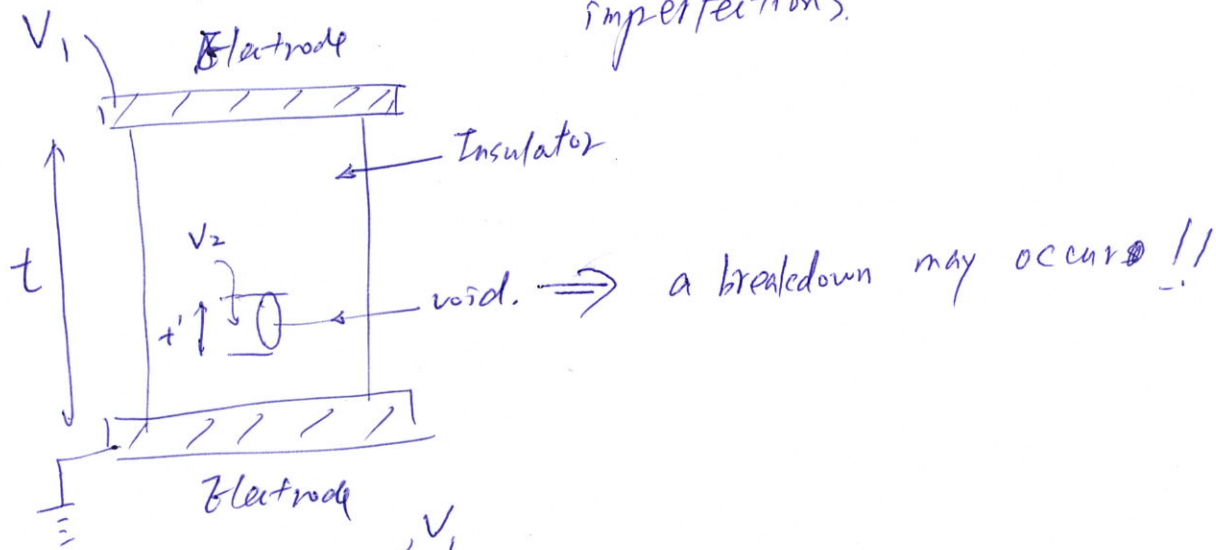 imperfections.
V1
Electrode
Insulator
V2
t
t'
void. ⇒ a breakdown may occurs !!
Electrode
V1